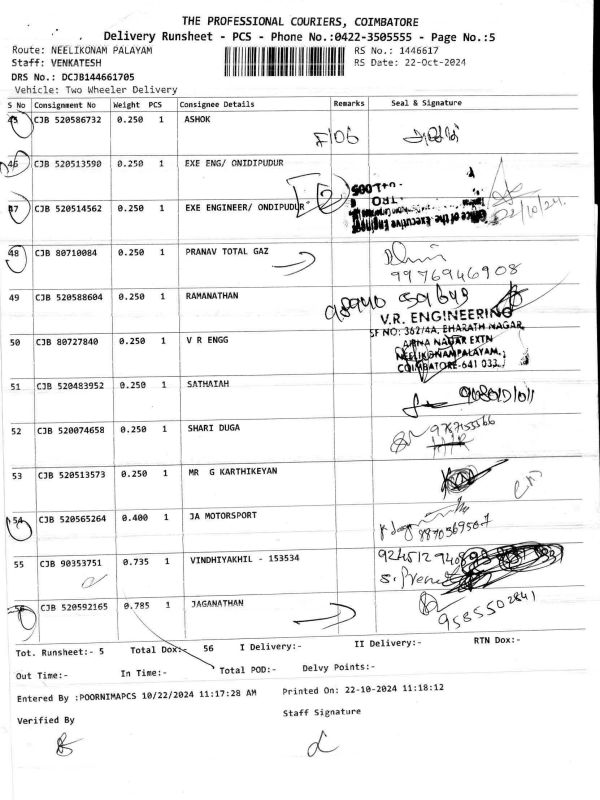 THE PROFESSIONAL COURIERS, COIMBATORE
Delivery Runsheet - PCS - Phone No.:0422-3505555 - Page No.:5
Route: NEELIKONAM PALAYAM
RS No.: 1446617
Staff: VENKATESH
RS Date: 22-Oct-2024
DRS No.: DCJB144661705
Vehicle: Two Wheeler Delivery
S No Consignment No Weight PCS Consignee Details Remarks Seal & Signature
45 CJB 520586732 0.250 1 ASHOK
F106
46 CJB 520513590 0.250 1 EXE ENG/ ONIDIPUDUR
47 CJB 520514562 0.250 1 EXE ENGINEER/ ONDIPUDUR
Office of the Executive Engineer
22/10/24.
48 CJB 80710084 0.250 1 PRANAV TOTAL GAZ
9976946908
49 CJB 520588604 0.250 1 RAMANATHAN
98940 501649
50 CJB 80727840 0.250 1 V R ENGG
V.R. ENGINEERING
SF NO: 362/4A, BHARATH NAGAR,
ANNA NAGAR EXTN
NEELIKONAMPALAYAM,
COIMBATORE-641 033.
51 CJB 520483952 0.250 1 SATHAIAH
52 CJB 520074658 0.250 1 SHARI DUGA
9787155566
53 CJB 520513573 0.250 1 MR G KARTHIKEYAN
54 CJB 520565264 0.400 1 JA MOTORSPORT
8870569507
55 CJB 90353751 0.735 1 VINDHIYAKHIL - 153534
56 CJB 520592165 0.785 1 JAGANATHAN
9585502841
Tot. Runsheet:- 5 Total Dox:- 56 I Delivery:- II Delivery:- RTN Dox:-
Out Time:- In Time:- Total POD:- Delvy Points:-
Entered By :POORNIMAPCS 10/22/2024 11:17:28 AM Printed On: 22-10-2024 11:18:12
Verified By
Staff Signature